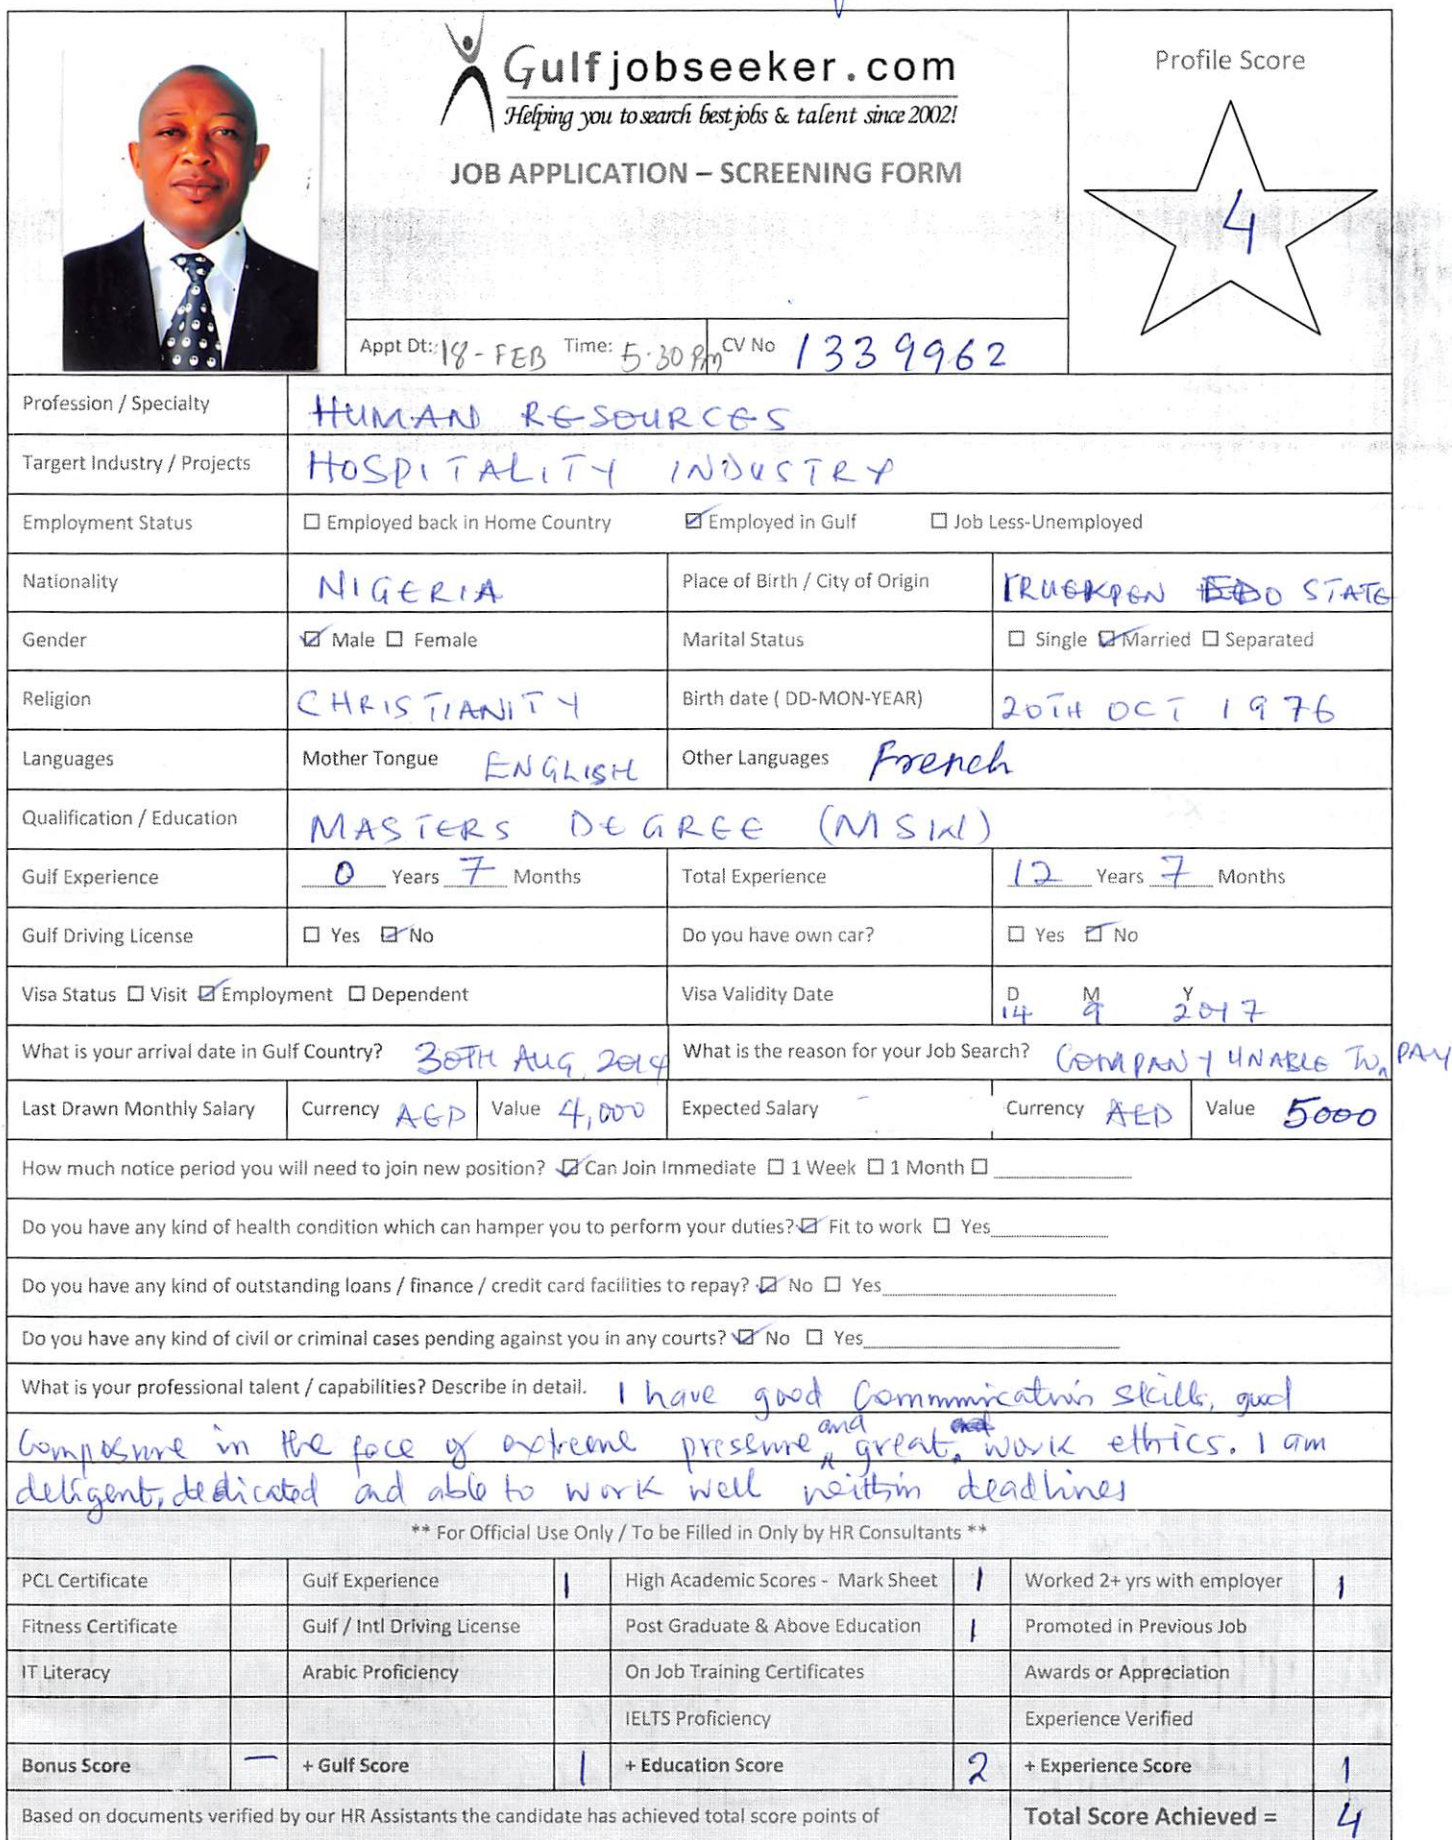 Gulfjobseeker.com
Helping you to search best jobs & talent since 2002!
JOB APPLICATION – SCREENING FORM
Profile Score
4
Appt Dt: 18-FEB Time: 5.30 Pm CV No 1339962
Profession / Specialty HUMAN RESOURCES
Targert Industry / Projects HOSPITALITY INDUSTRY
Employment Status ☐ Employed back in Home Country ☑ Employed in Gulf ☐ Job Less-Unemployed
Nationality NIGERIA Place of Birth / City of Origin IRUEKPEN EDO STATE
Gender ☑ Male ☐ Female Marital Status ☐ Single ☑ Married ☐ Separated
Religion CHRISTIANITY Birth date ( DD-MON-YEAR) 20TH OCT 1976
Languages Mother Tongue ENGLISH Other Languages French
Qualification / Education MASTERS DEGREE (MSW)
Gulf Experience 0 Years 7 Months Total Experience 12 Years 7 Months
Gulf Driving License ☐ Yes ☑ No Do you have own car? ☐ Yes ☑ No
Visa Status ☐ Visit ☑ Employment ☐ Dependent Visa Validity Date D 14 M 9 Y 2017
What is your arrival date in Gulf Country? 30TH AUG, 2014 What is the reason for your Job Search? COMPANY UNABLE TO PAY
Last Drawn Monthly Salary Currency AED Value 4,000 Expected Salary Currency AED Value 5000
How much notice period you will need to join new position? ☑ Can Join Immediate ☐ 1 Week ☐ 1 Month ☐
Do you have any kind of health condition which can hamper you to perform your duties? ☑ Fit to work ☐ Yes
Do you have any kind of outstanding loans / finance / credit card facilities to repay? ☑ No ☐ Yes
Do you have any kind of civil or criminal cases pending against you in any courts? ☑ No ☐ Yes
What is your professional talent / capabilities? Describe in detail. I have good Communication skills, good
Composure in the face of extreme pressure and great work ethics. I am
deligent, dedicated and able to work well within deadlines
** For Official Use Only / To be Filled in Only by HR Consultants **
PCL Certificate Gulf Experience 1 High Academic Scores - Mark Sheet 1 Worked 2+ yrs with employer 1
Fitness Certificate Gulf / Intl Driving License Post Graduate & Above Education 1 Promoted in Previous Job
IT Literacy Arabic Proficiency On Job Training Certificates Awards or Appreciation
IELTS Proficiency Experience Verified
Bonus Score — + Gulf Score 1 + Education Score 2 + Experience Score 1
Based on documents verified by our HR Assistants the candidate has achieved total score points of Total Score Achieved = 4